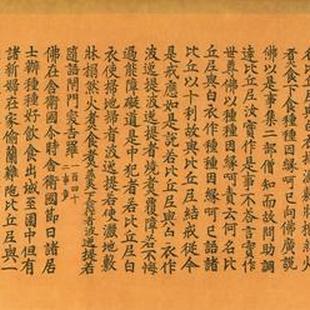 名比丘尼與白衣掃灑敷牀榻然火
煑食下食種種因緣呵已向佛廣說
佛以是事集二部僧知而故問助調
達比丘尼汝實作是事不答言實作
世尊佛以種種因緣呵責云何名比
丘尼與白衣作種種因緣呵已語諸
比丘以十利故與比丘尼結戒從今
是戒應如是說若比丘尼與白衣作
波逸提波逸提者燒煑覆障若不悔
過能障礙道是中犯者若比丘尼白
衣使掃地掃者波逸提若使灑地敷
牀榻然火煑食煑羹下食波逸提若
隨語閇門突吉羅一百四十二事竟
佛在舍衛國尒時舍衛國節日諸居
士辦種種好飲食出城至園中但有
諸新婦在家偷蘭難陁比丘尼與一